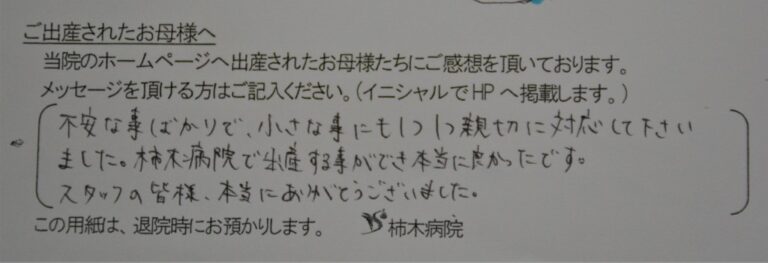 ご出産されたお母様へ
当院のホームページへ出産されたお母様たちにご感想を頂いております。
メッセージを頂ける方はご記入ください。(イニシャルでHPへ掲載します。)
不安な事ばかりで、小さな事にも1つ1つ親切に対応して下さい
ました。柿木病院で出産する事ができ本当に良かったです。
スタッフの皆様、本当にありがとうございました。
この用紙は、退院時にお預かりします。 柿木病院